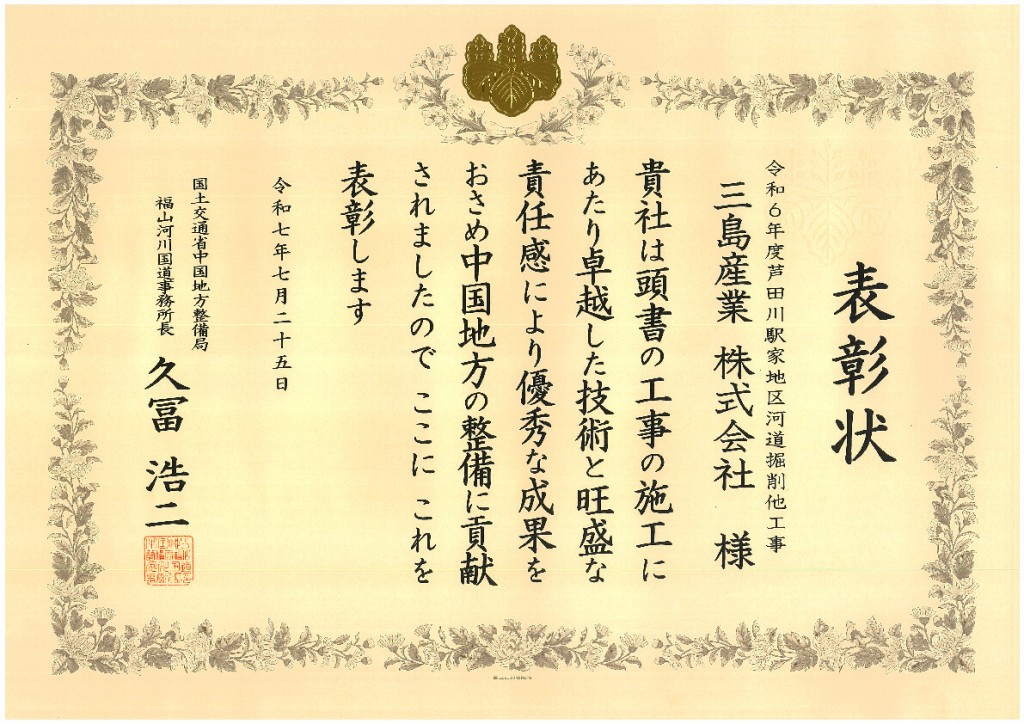 表彰状
令和6年度芦田川駅家地区河道掘削他工事
三島産業 株式会社 様
貴社は頭書の工事の施工に
あたり卓越した技術と旺盛な
責任感により優秀な成果を
おさめ中国地方の整備に貢献
されましたので ここに これを
表彰します
令和七年七月二十五日
国土交通省中国地方整備局
福山河川国道事務所長
久冨 浩二